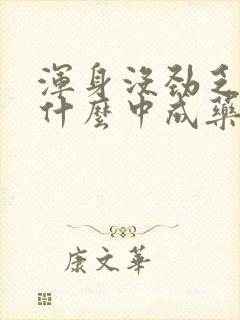 渾身沒勁乏
什麼中成藥
康文華